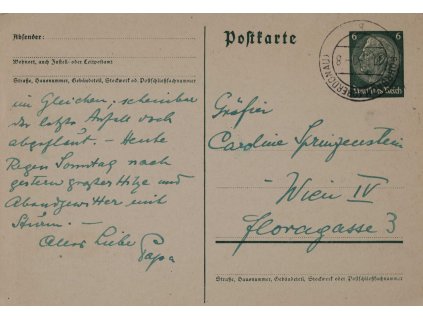 Absender:
Wohnort, auch Zustell- oder Leitpostamt
Straße, Hausnummer, Gebäudeteil, Stockwerk od. Postschließfachnummer
im Gleichen, scheinbar
der letzte Anfall doch
abgeflaut. – Heute
Regen Sonntag nach
gestern großer Hitze und
Abendgewitter mit
Sturm. –
Alles Liebe Papa
Postkarte
6 6
Deutsches Reich
Gräfin
Caroline Sprinzenstein
Wien IV
Floragasse 3
Straße, Hausnummer, Gebäudeteil, Stockwerk oder Postschließfachnummer